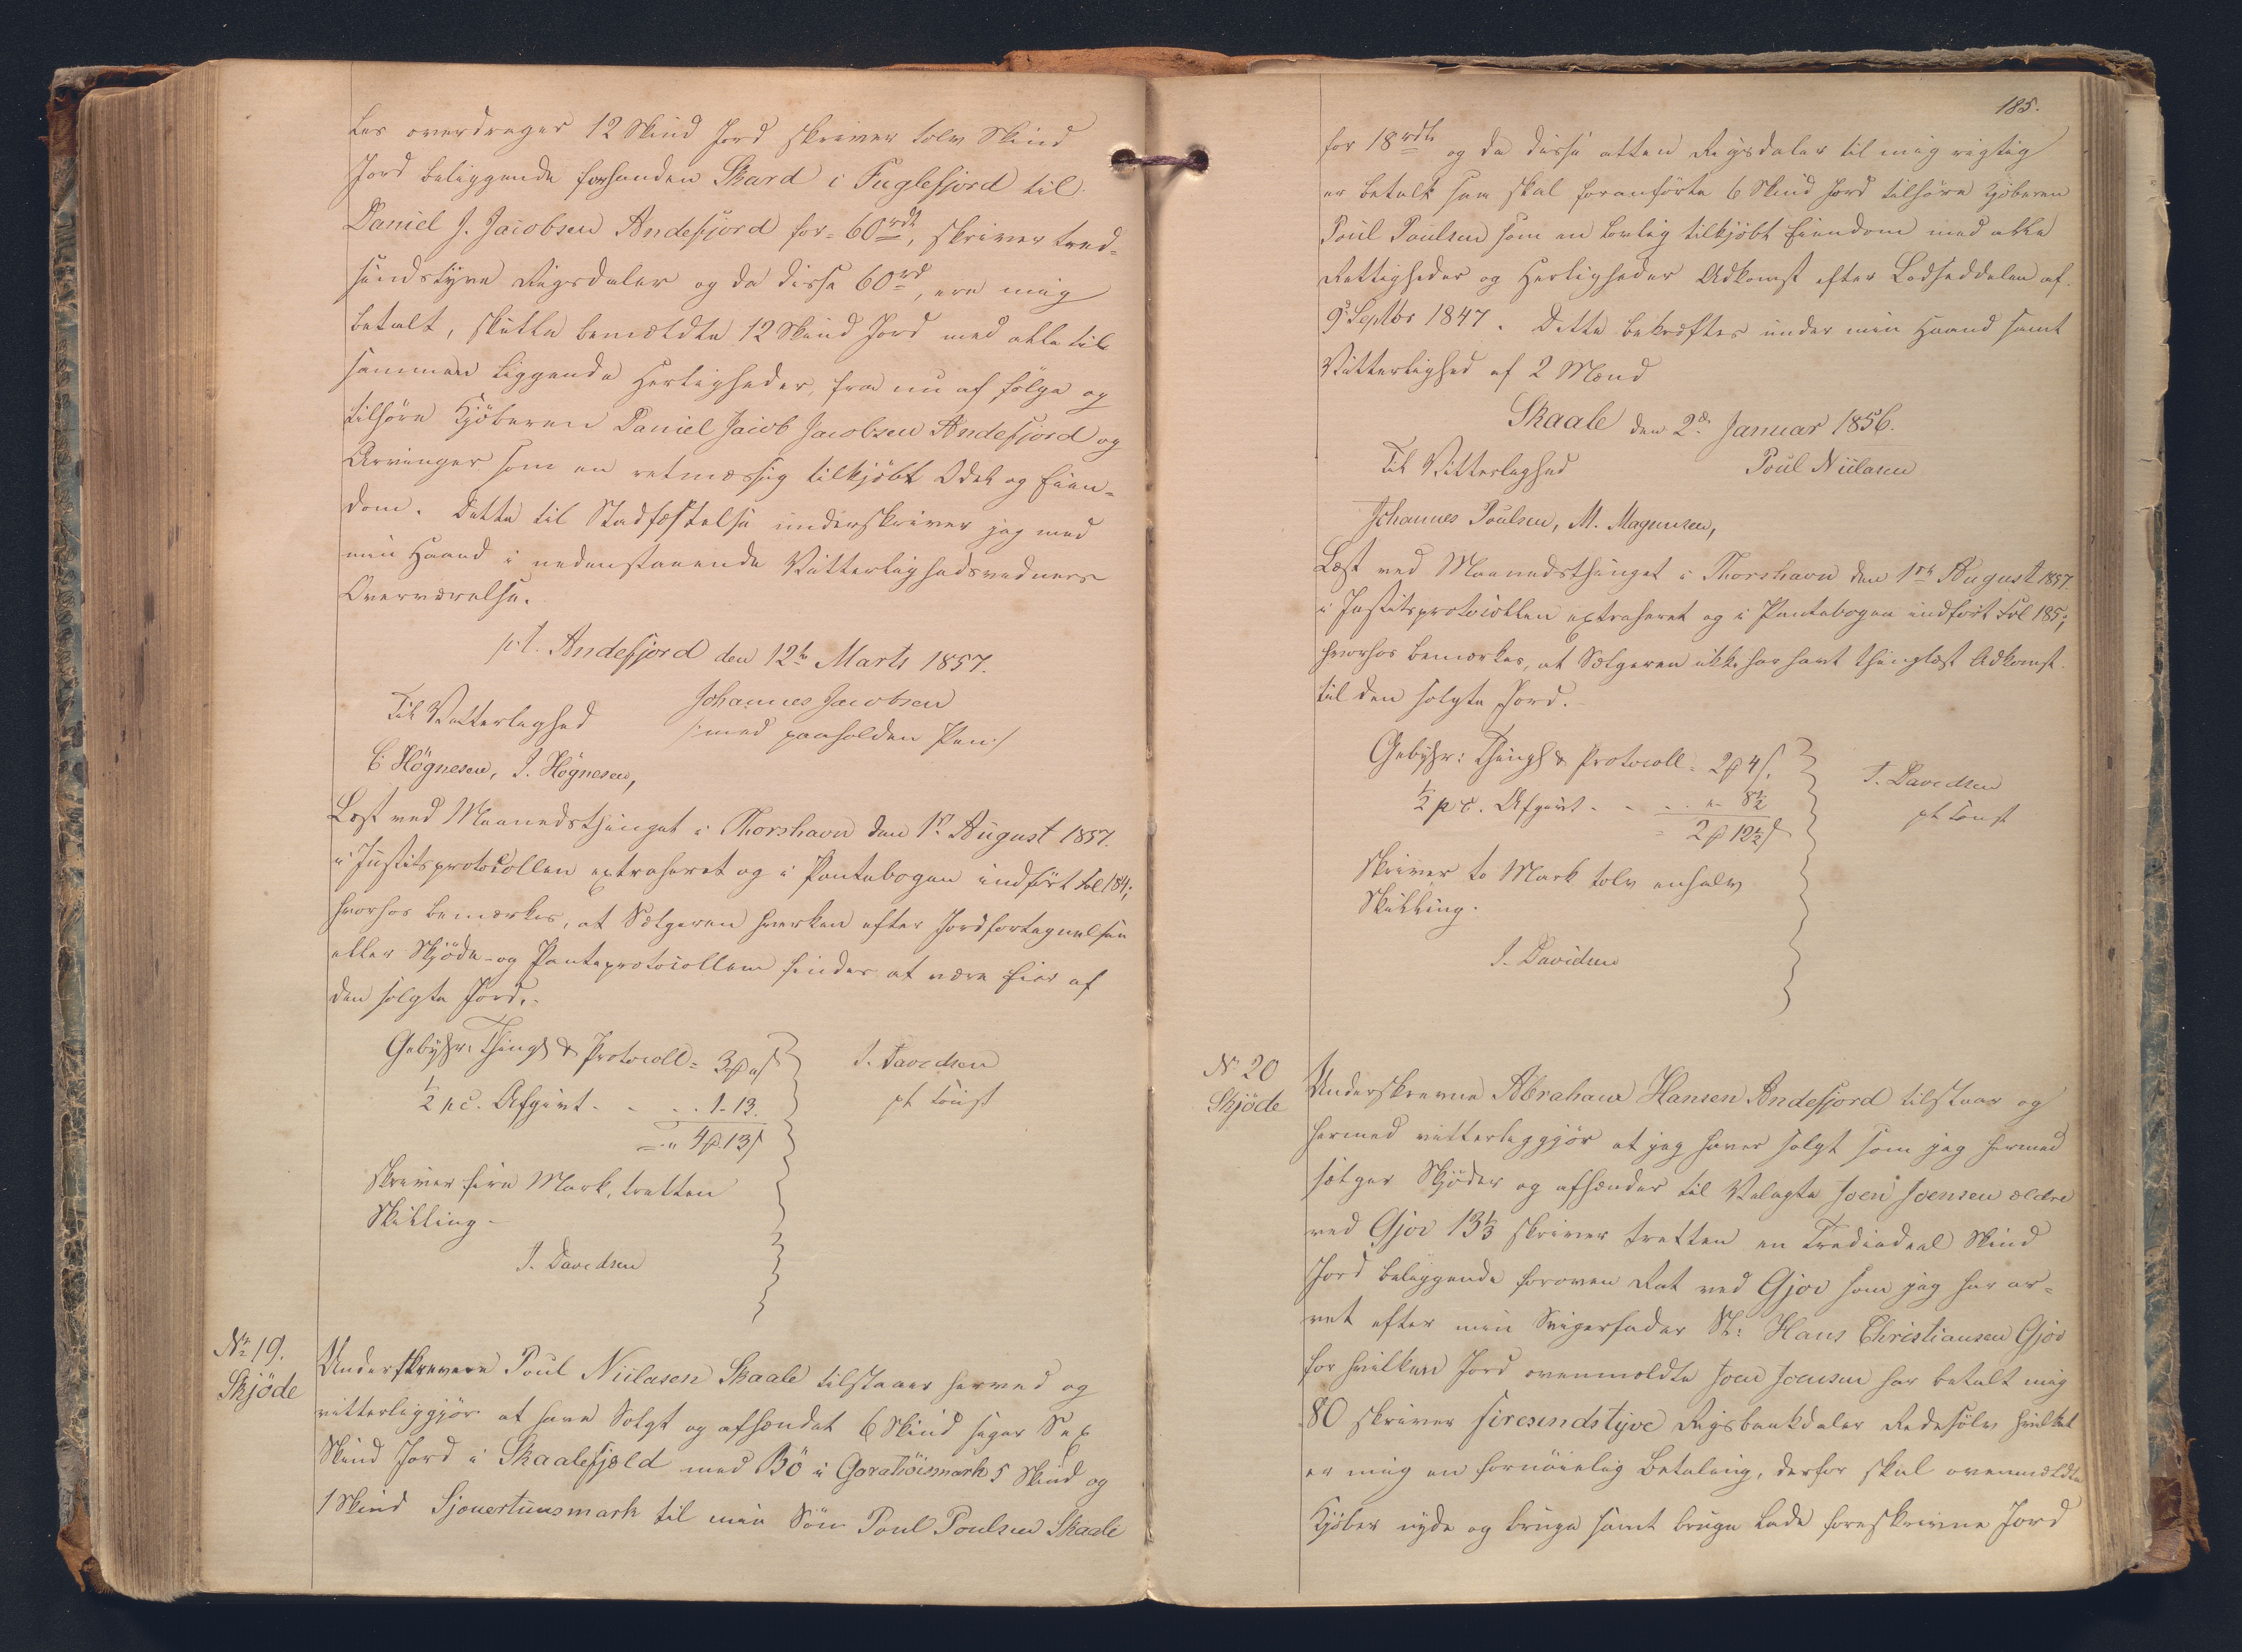 ter overdrager 12 Skind Jord skriver tolv Skind
Jord beliggende forsanden Skard i Fuglefjord til
Daniel J. Jacobsen Andefjord for 60 rdl, skriver tred-
sindstyve Rigsdaler og da disse 60 rd, ere mig
betalt, skulle bemældte 12 Skind Jord med alle til
sammen liggende Herligheder, fra nu af følge og
tilhøre Kjøberen Daniel Jacob Jacobsen Andefjord og
Arvinger som en retmæssig tilkjøbt Odel og Eien-
dom. Dette til Stadfæstelse underskriver jeg med
min Haand i nedenstaaende Vitterlighedsvidners
Overværelse.
p:t. Andefjord den 12te Marts 1857.
Til Vitterlighed Johannes Jacobsen
/:med paaholden Pen:/
C. Högnesen, J. Högnesen,
Læst ved Maanedsthinget i Thorshavn den 1ste August 1857.
i Justitsprotocollen extraheret og i Pantebogen indført Fol 184;
hvorhos bemærkes, at Sælgeren hverken efter Jordfortegnelsen
eller Skjøde- og Panteprotocollem findes at være Eier af
den solgte Jord.-
Gebyhr: Thingl & Protocoll = 3 ₻ " ß
½ pc. Afgivt - - . . 1. 13.
= " 4 ₻ 13 ß
J. Davidsen
pt const
skriver fire Mark, tretten
Skilling -
J. Davidsen
No 19.
Skjöde
Underskrevne Poul Niclasen Skaale tilstaaer herved og
vitterliggjør at have Solgt og afhændet 6 Skind siger Sex
Skind Jord i Skaalefjeld med Bö i Goratlöismark 5 Skind og
1 Skind Sjouertunsmark til min Søn Poul Poulsen Skaale
185.
for 18 rdl og da disse atten Rigsdaler til mig rigtig
er betalt saa skal foranførte 6 Skind Jord tilhøre Kjøberen
Poul Poulsen som en lovlig tilkjøbt Eiendom med alle
Rettigheder og Herligheder Adkomst efter Lodseddelen af
9 Septbr 1847. Dette bekræftes under min Haand samt
Vitterlighed af 2 Mænd
Skaale den 2den Januar 1856.
Til Vitterlighed Poul Niclasen
Johannes Poulsen, M. Magnusen,
Læst ved Maanedsthinget i Thorshavn den 1ste August 1857.
i Justitsprotocollen extraheret og i Pantebogen indført Fol 185;
hvorhos bemærkes, at Sælgeren ikke har havt thinglæst Adkomst
til den solgte Jord.
Gebyhr: Thingl & Protocoll = 2 ₻ 4 ß.
½ p c. Afgivt - - . . " - 8½
= 2 ₻ 12½ ß
J. Davidsen
pt const
skriver to Mark tolv enhalv
Skilling.
J. Davidsen
No 20
Skjöde
Underskrevne Abraham Hansen Andefjord tilstaar og
hermed vitterliggjør at jeg haver solgt som jeg hermed
sælger Skjøder og afhænder til Velagte Joen Joensen ældre
ved Gjov 13⅓ skriver tretten en Trediedeel Skind
Jord beliggende foroven Ret ved Gjov som jeg har ar-
vet efter min Svigerfader Sl: Hans Christiansen Gjov
for hvilken Jord ovenmeldte Joen Joensen har betalt mig
80 skriver firesindstyve Rigsbankdaler Redesølv hvilket
er mig en fornøielig Betaling, derfor skal ovenmeldte
Kjøber nyde og bruge samt bruge lade foreskrevne Jord